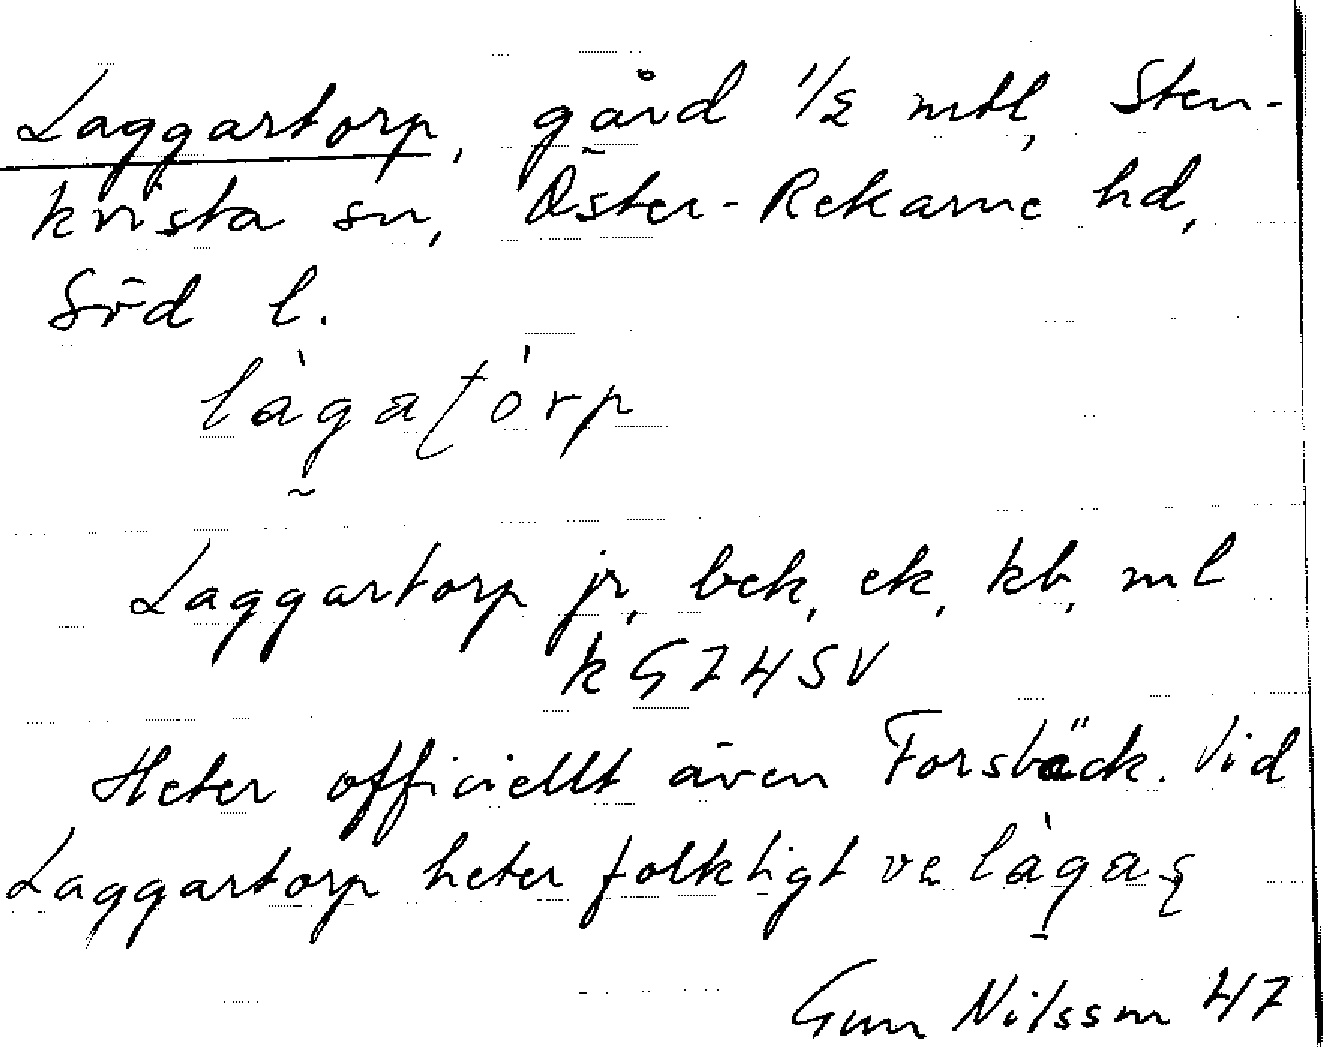 Laggartorp, gård 1/2 mtl, Sten-
kvista sn, Öster-Rekarne hd,
Söd l.
làgatorp
Laggartorp jr, bek, ek, kb, ml
k G 7 4 SV
Heter officiellt även Forsbäck. Vid
Laggartorp heter folkligt ve làgaʂ
Gun Nilsson 47